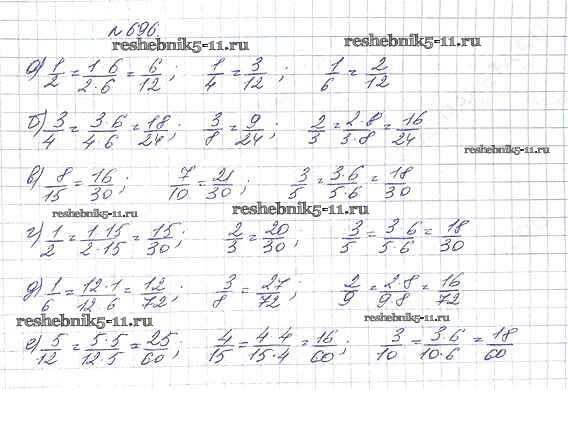 №696.
reshebnik5-11.ru reshebnik5-11.ru
а) 1/2 = 1·6/2·6 = 6/12; 1/4 = 3/12; 1/6 = 2/12
б) 3/4 = 3·6/4·6 = 18/24; 3/8 = 9/24; 2/3 = 2·8/3·8 = 16/24
reshebnik5-11.ru
в) 8/15 = 16/30; 7/10 = 21/30; 3/5 = 3·6/5·6 = 18/30
reshebnik5-11.ru reshebnik5-11.ru
г) 1/2 = 1·15/2·15 = 15/30; 2/3 = 20/30; 3/5 = 3·6/5·6 = 18/30
д) 1/6 = 12·1/12·6 = 12/72; 3/8 = 27/72; 2/9 = 2·8/9·8 = 16/72
reshebnik5-11.ru reshebnik5-11.ru
е) 5/12 = 5·5/12·5 = 25/60; 4/15 = 4·4/15·4 = 16/60; 3/10 = 3·6/10·6 = 18/60